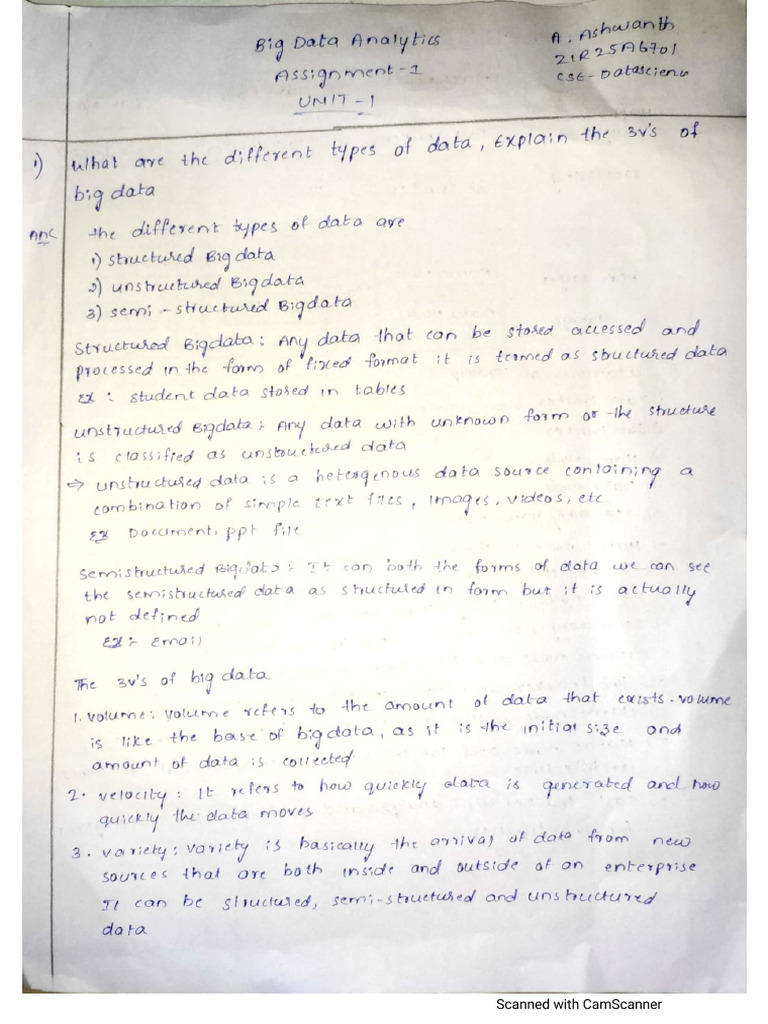 Big Data Analytics
Assignment-1
UNIT-1
A. Ashwanth
21R25A6701
CSE-Datascience
1) What are the different types of data, Explain the 3v's of
big data
Ans the different types of data are
1) structured Bigdata
2) unstructured Bigdata
3) semi-structured Bigdata
Structured Bigdata: Any data that can be stored accessed and
processed in the form of fixed format it is termed as structured data
Ex: student data stored in tables
unstructured Bigdata: Any data with unknown form or the structure
is classified as unstructured data
⇒ unstructured data is a hetergenous data source containing a
combination of simple text files, images, videos, etc
Ex Document, ppt file
Semistructured Bigdata: It can both the forms of data we can see
the semistructured data as structured in form but it is actually
not defined
Ex:- Email
The 3v's of big data
1. volume: volume refers to the amount of data that exists. volume
is like the base of bigdata, as it is the initial size and
amount of data is collected
2. velocity: It refers to how quickly data is generated and how
quickly the data moves
3. variety: variety is basically the arrival of data from new
sources that are both inside and outside of an enterprise
It can be structured, semi-structured and unstructured
data
Scanned with CamScanner